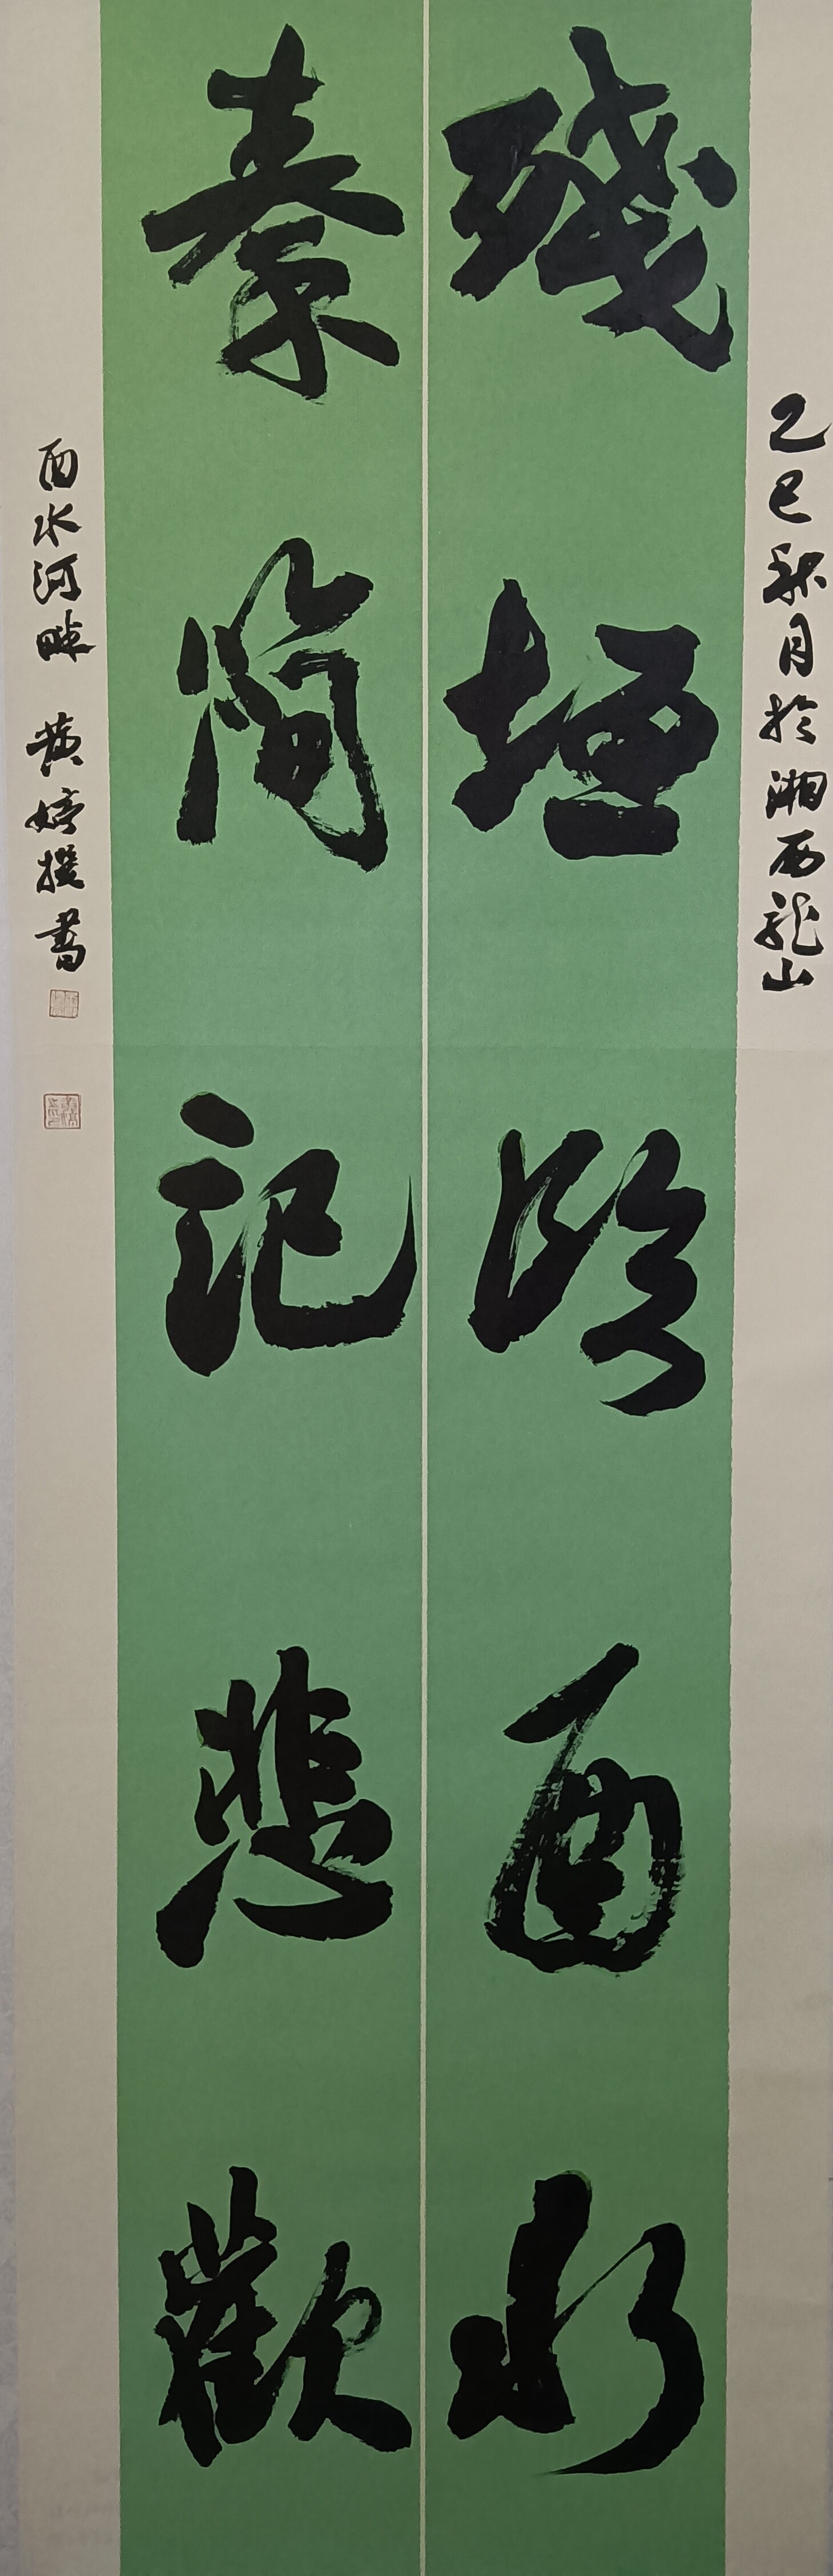 乙巳秋月於湘西龍山
殘垣臨酉水
秦簡記悲歡
酉水河畔 黄婷撰書